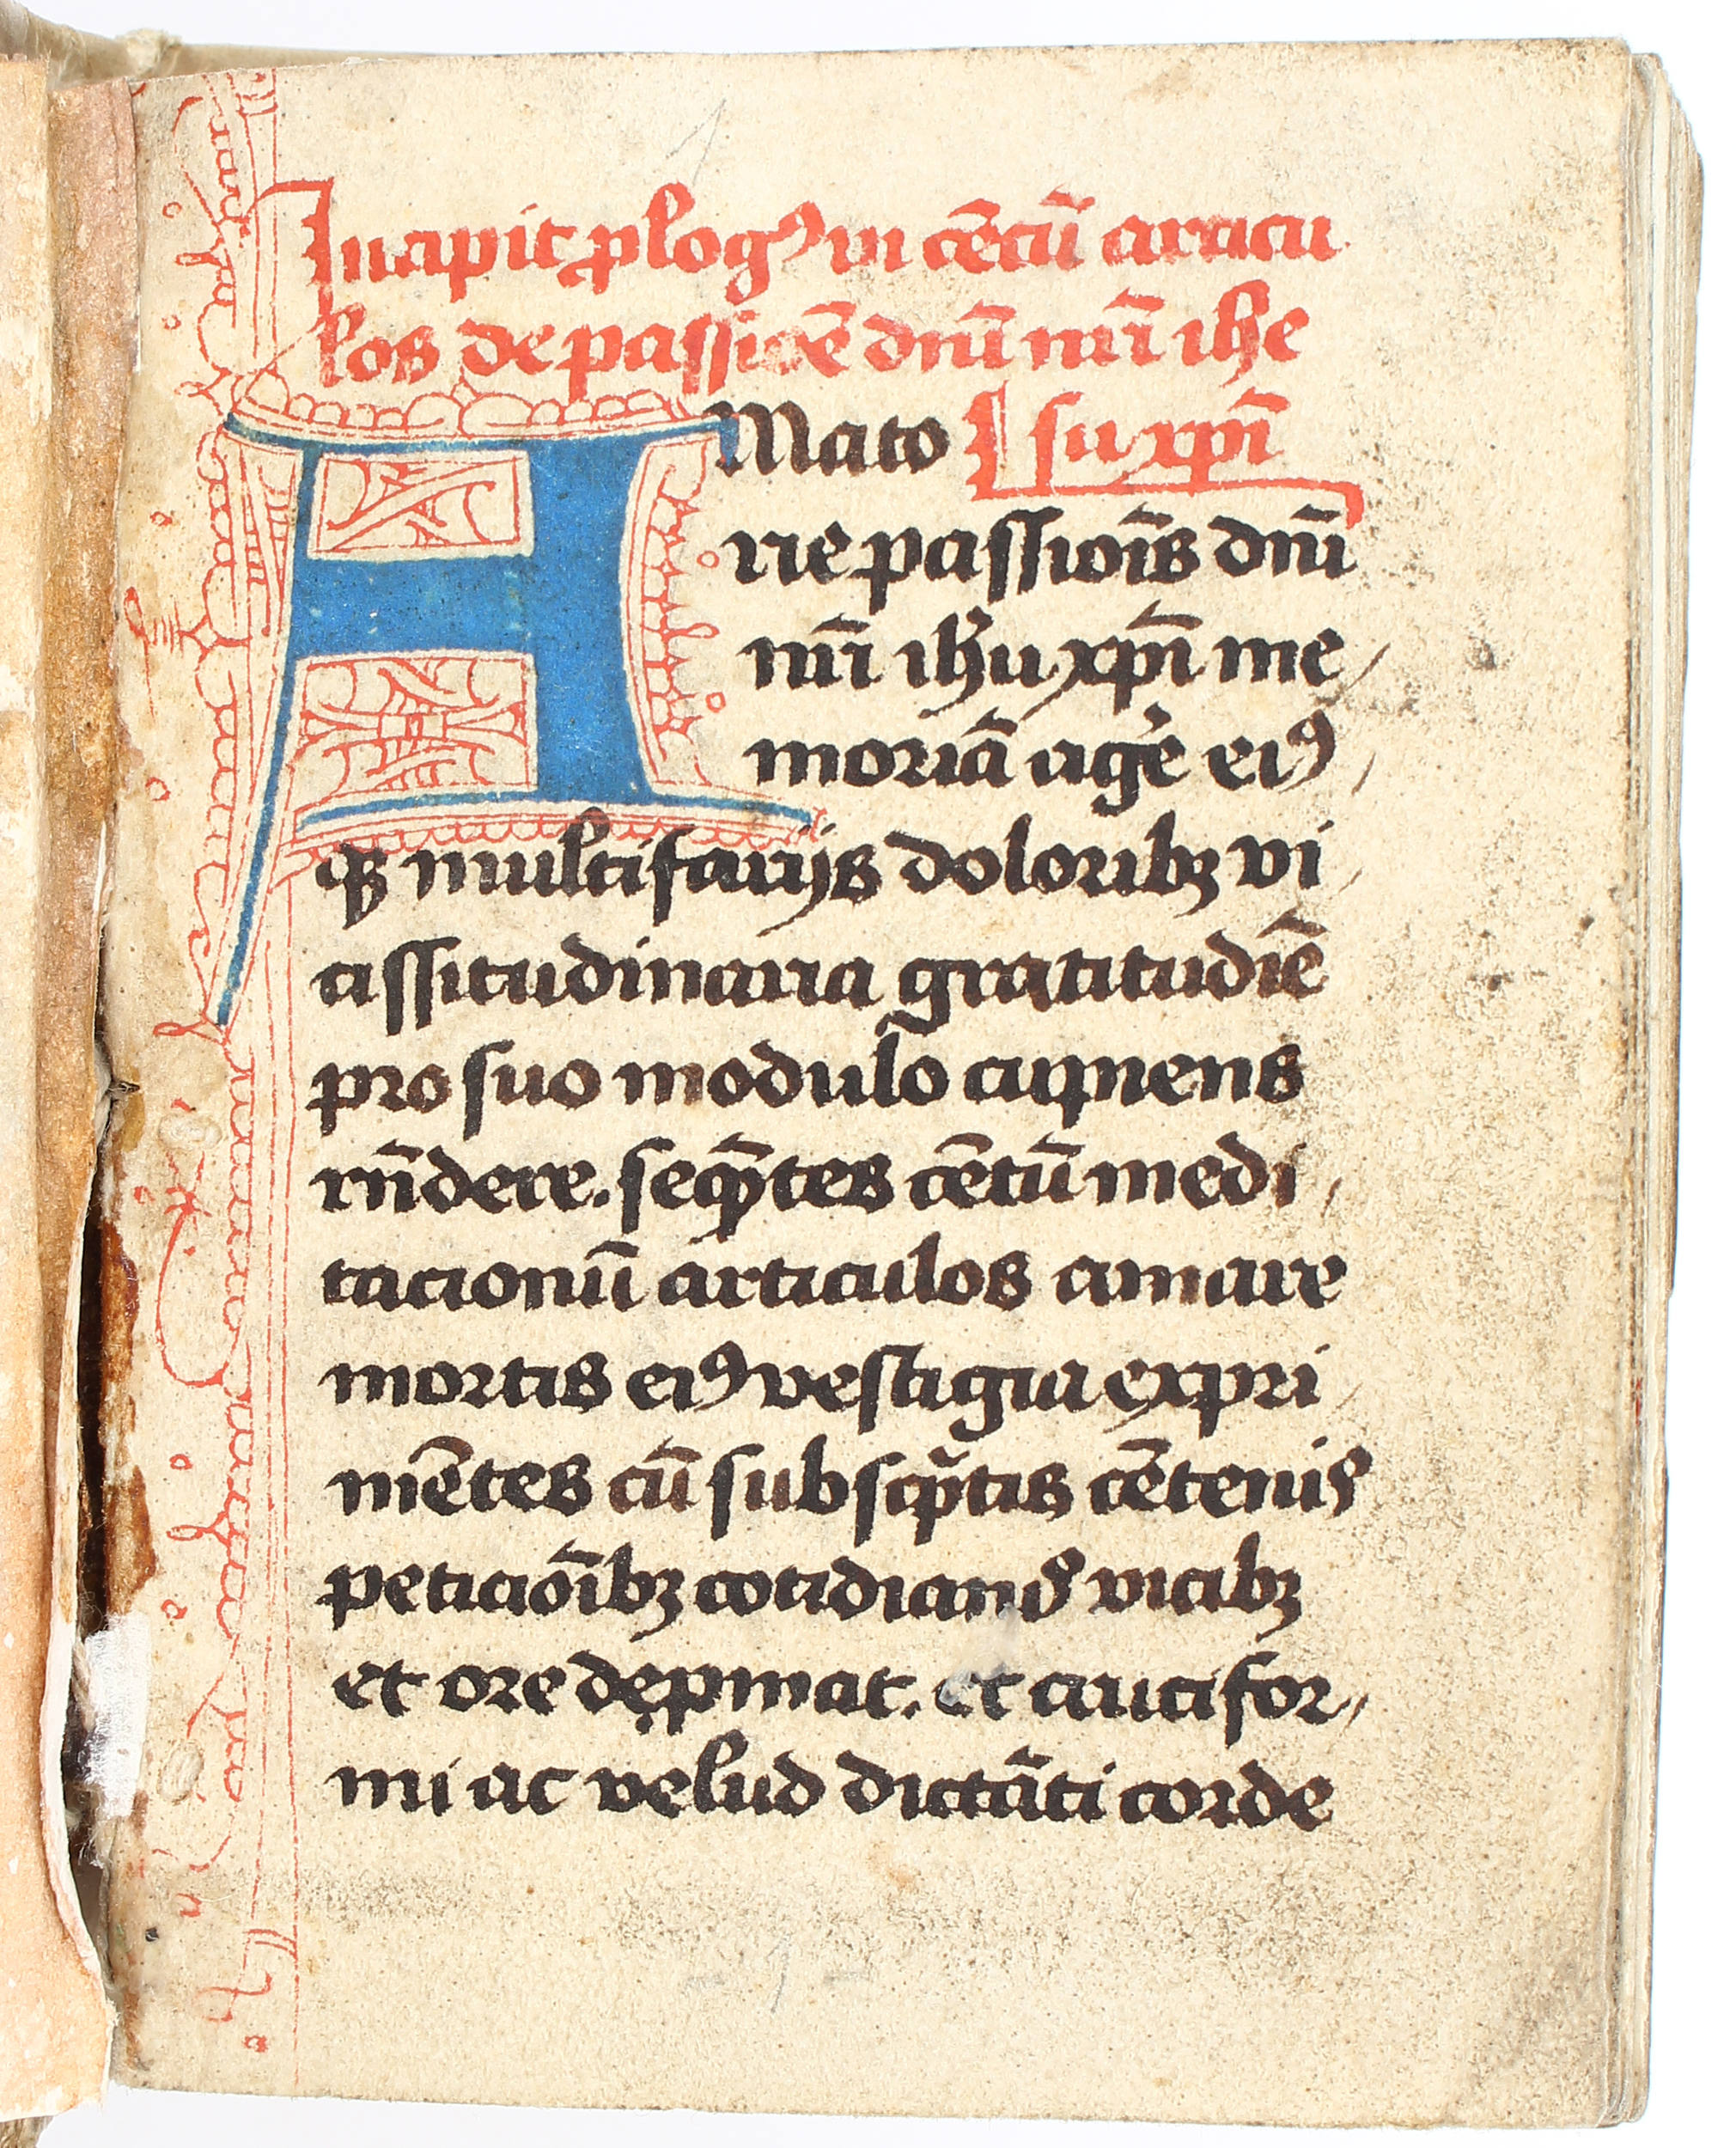 Incipit plogꝰ in cētū articu
los de passiōē dnī nrī ihe
AMatoɼ su xpī
rie passioīs dnī
nrī ihu xpī me
moriā agē eiꝰ
qꝫ multifariis doloribꝫ vi
cissitudinaria gratitudīe
pro suo modulo cupiens
rn̄dere. seqn̄tes cētū medi
tacionū articulos amare
mortis eiꝰ vestigia expri
mētes cū subscptis cētenis
peticiōibꝫ cotidianis vicibꝫ
et ore depmat. et crucifor
mi ac velud dictāti corde